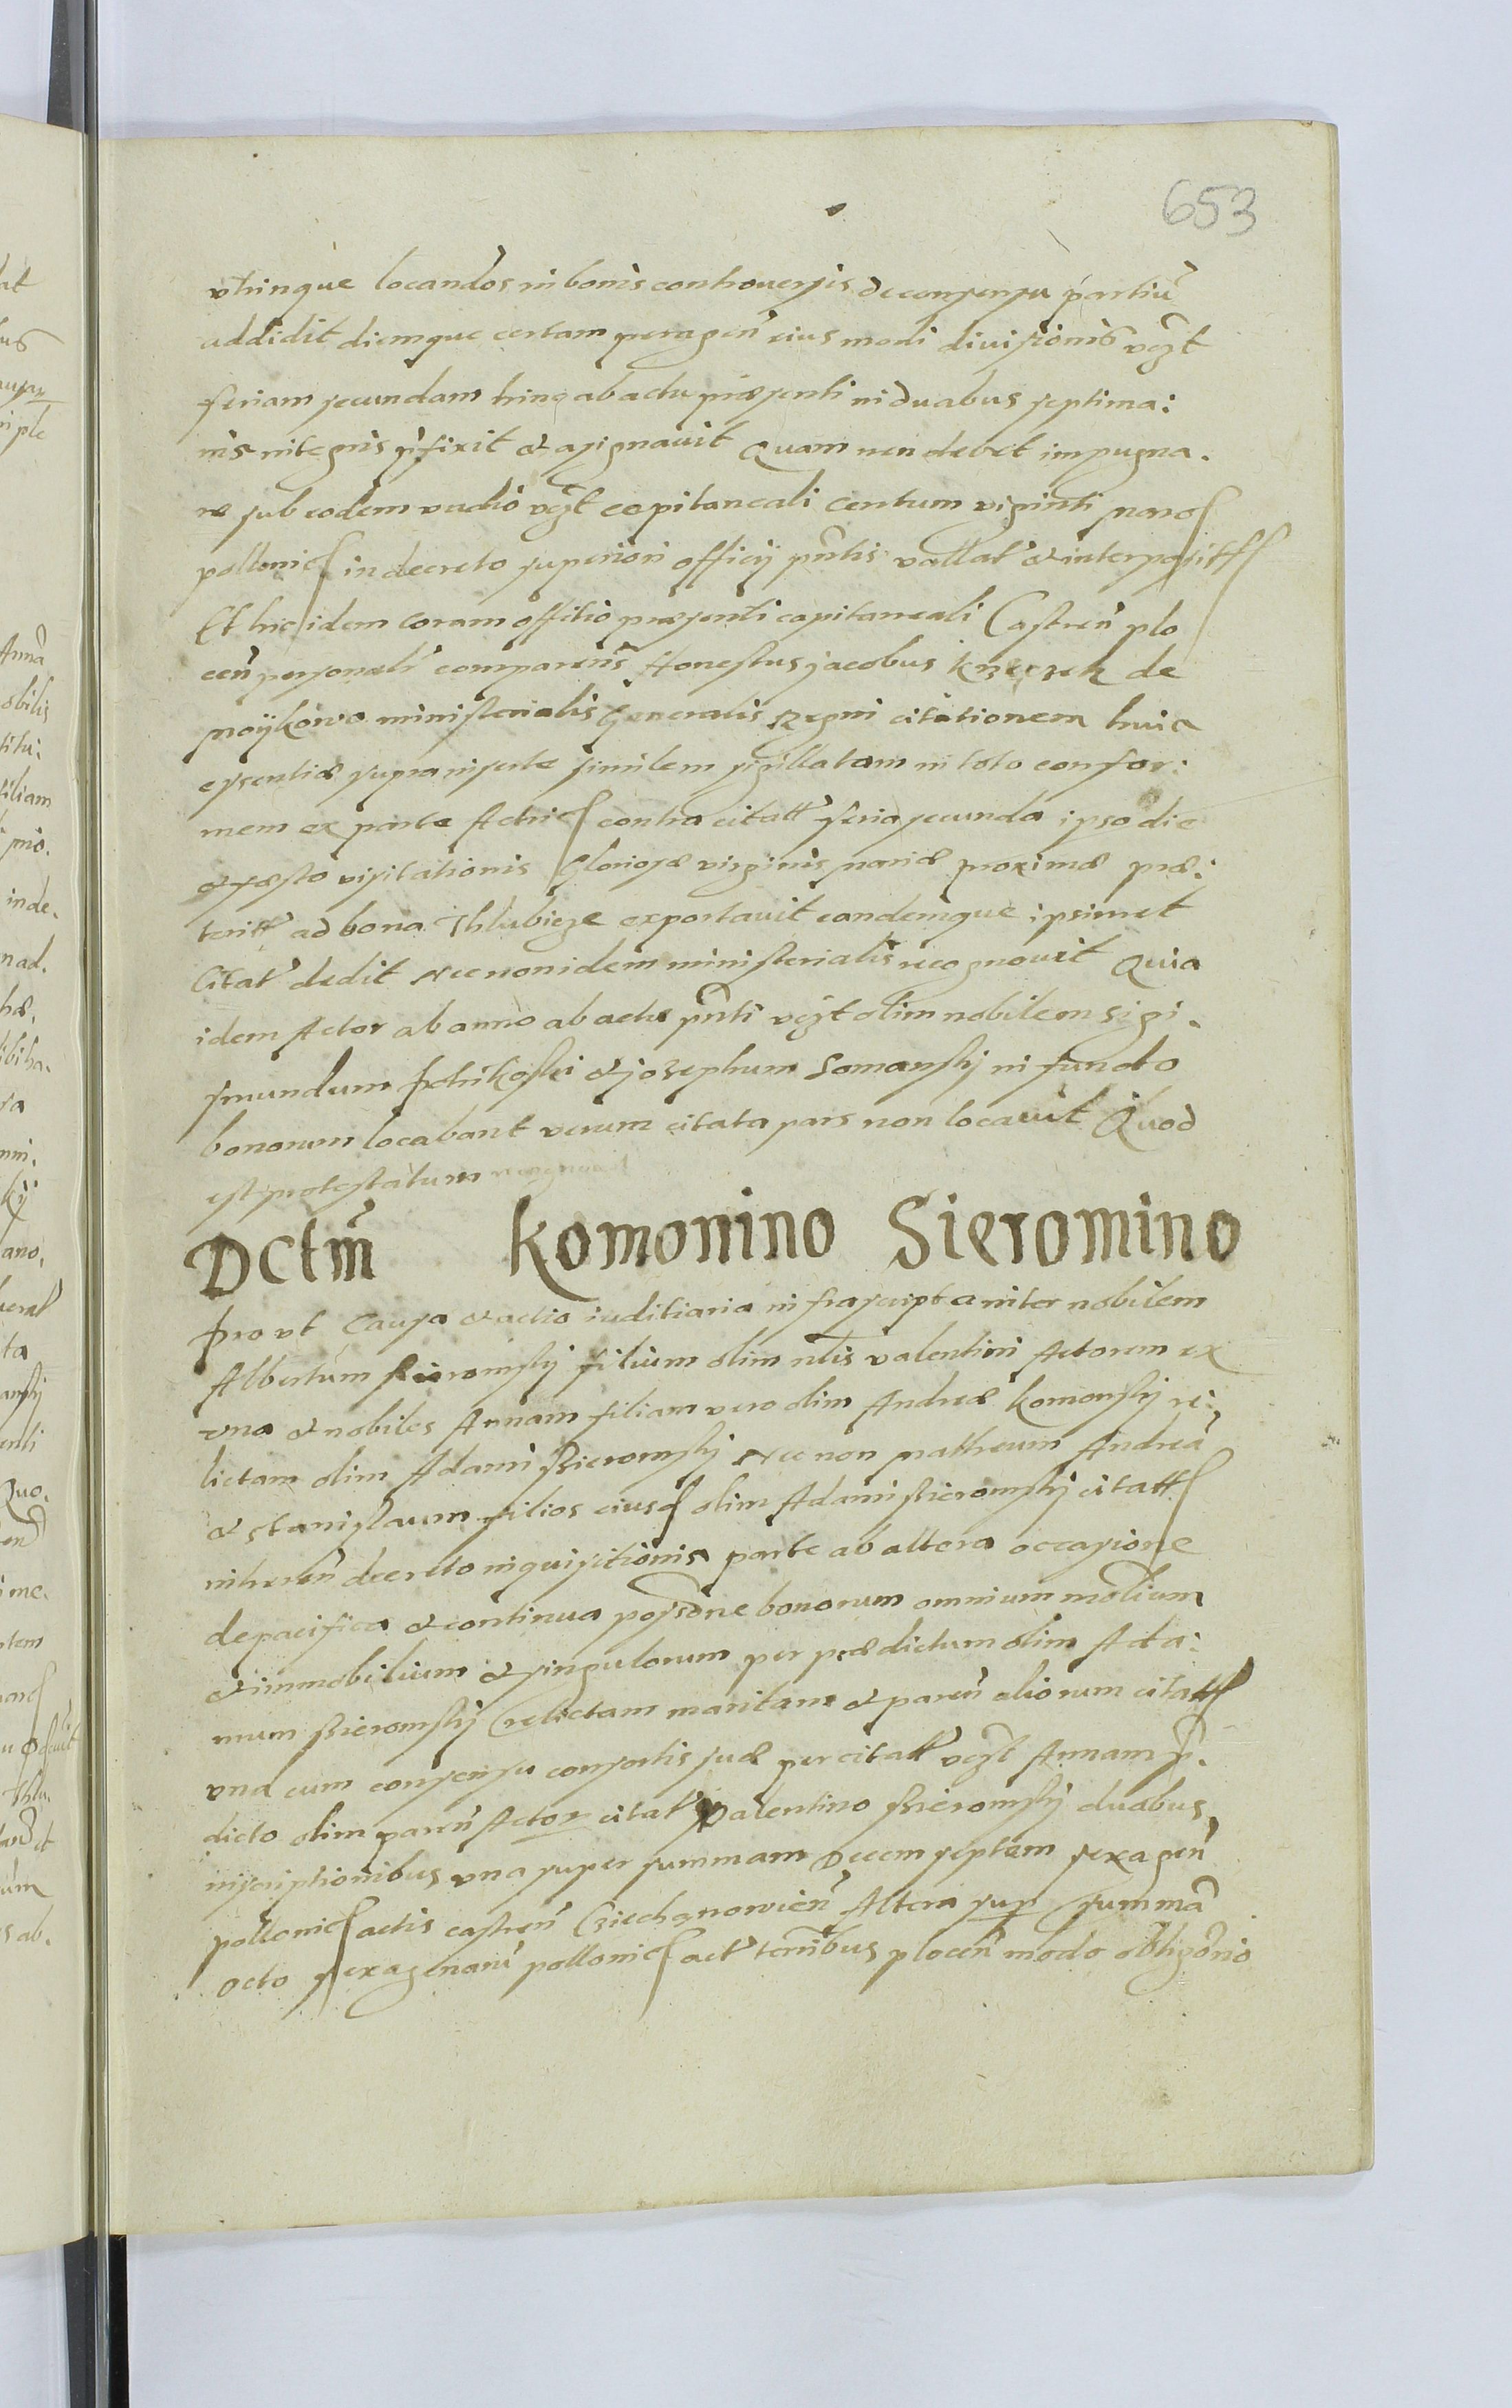 653
vtrinque locandos in bonis controuersis de consensu partiu͂
addidit diemque certam peragen͂ eius modi diuisionis vcz͂t
feriam secundam hinc ab actu præsenti in duabus septima:
nis integris p͂fixit & assignauit Quam non debet impugna.
re sub eodem vadio vcz͂t capitaneali Centum viginti marc
pollonic in decreto superiori officij pn͂tis vallat & interposit
Et hic idem coram offitio præsenti capitaneali Castren͂ plo
cen͂ personali͂ comparens Honestus jacobus de
ministerialis Generalis Regni citationem huic
essentiæ suprainserte similem sigillatam in toto confor:
mem ex parte Actric contra citatt feria secunda ipso die
& fæsto visitationis Gloriosæ virginis mariæ proximæ præ:
teritt ad bona exportauit eandemque ipsimet
Citat dedit Nec non idem ministerialis recognouit Quia
idem Actor ab anno ab actu pn͂ti vcz͂t olim nobilem sigi.
smundum & josephum Somansky in fundo
bonorum locabant verum citata pars non locauit Quod
est protestatum recognouit
Dctm͂ Komonino Sieromino
Prout Causa & actio iuditiaria infrascripta inter nobilem
Albertum Sieromsky filium olim nlis valentini Actorem ex
vna & nobiles Annam filiam vero olim Andreæ Komonsky re:
lictam olim Adami Sieromsky Nec non matheum Andrea͂
& stanislaum filios eiusd olim Adami Sieromsky citatt
inheren͂ decreto inquisitionis parte ab altera occasione
de pacifica & continua possone bonorum omnium molium
& immobilium & singulorum per prædictum olim Ada:
mum Sieromsky relictam maritam & paren͂ aliorum citatt
vna cum consensu consortis suæ per citatt vcz͂t Annam p͂.
dicto olim paren͂ Actor citat valentino Sieromsky duabus
inscriptionibus vna super summam Decem septem sexagen͂
pollonic actis castren͂ Cziechanowien͂ Altera sup summa͂
octo sexagenaru͂ pollonic act terribus plocen͂ modo obligorio